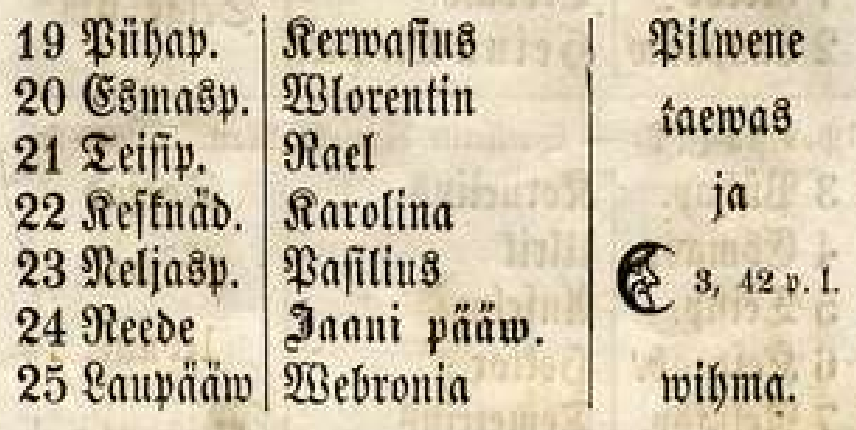 19 Pühap. Kerwasius Pilwene
20 Esmasp. Wlorentin taewas
21 Teisip. Rael
22 Kesknäd. Karolina ja
23 Neljasp. Pasilius 3, 42 p. l.
24 Reede Jaani pääw.
25 Laupääw Webronia wihma.